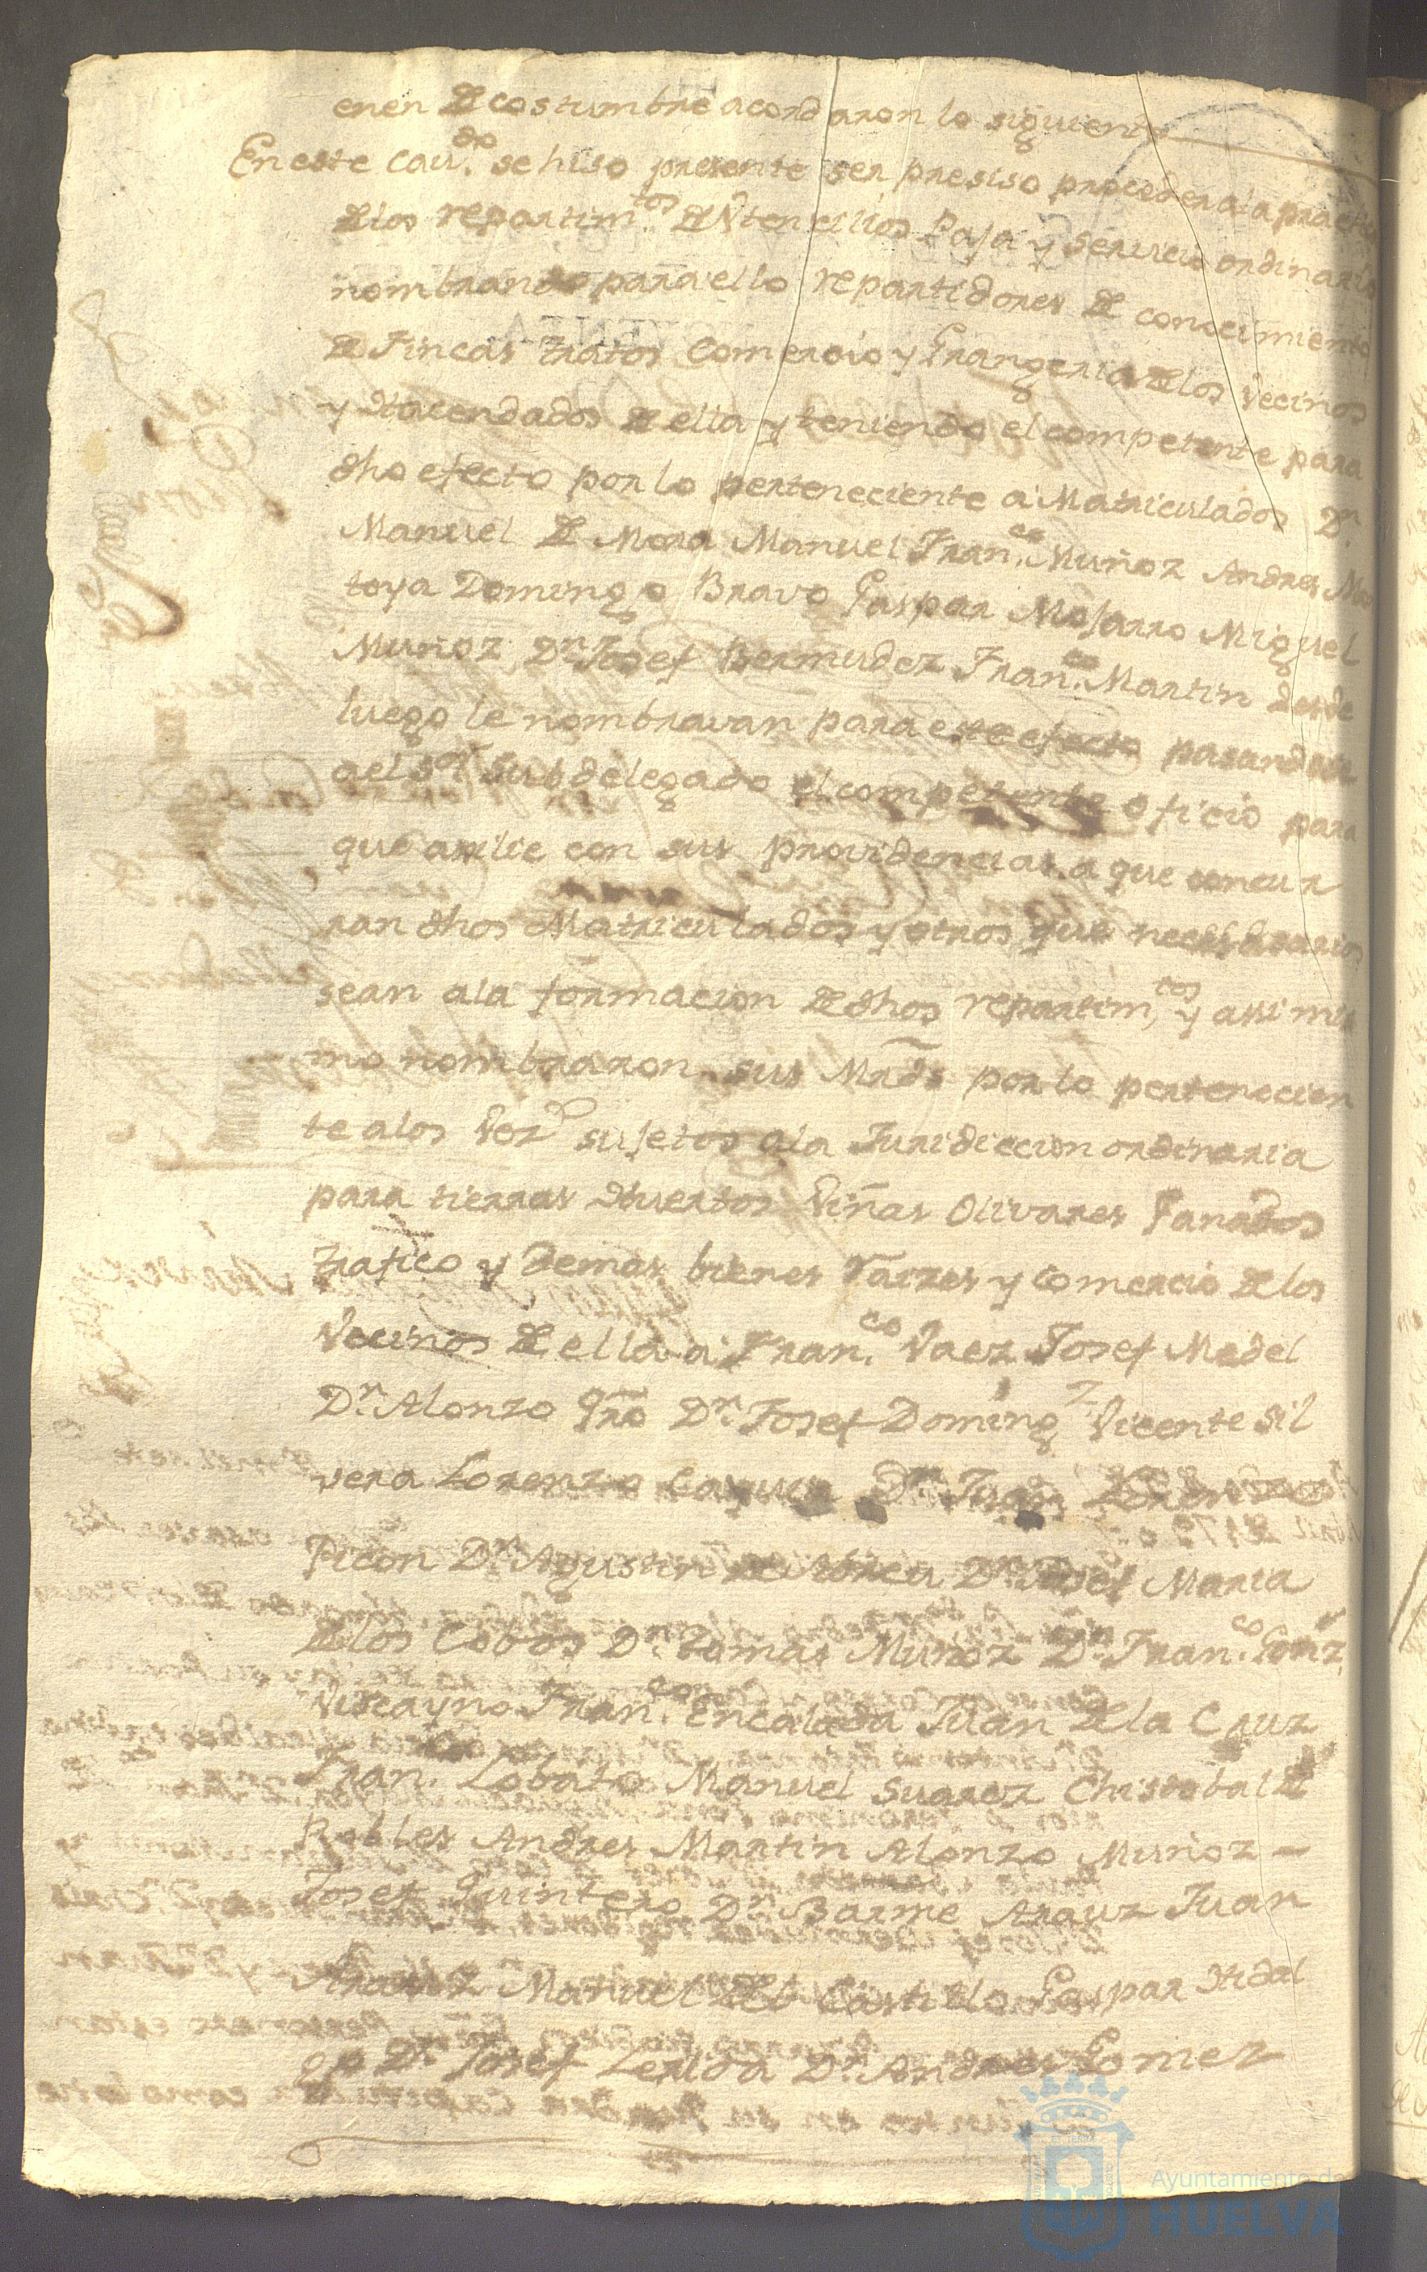 enen de costumbre acordaron lo siguiente
En este Cau.do se hiso presente ser presiso proceder a la practica
de los repartim.tos de Vtencilios Paja y servicio ordinario
nombrando para ello repartidores de conocimiento
de Fincas tratos Comercio y Grangeria de los Vecinos
y Hacendados de ella y teniendo el competente para
dho efecto por lo perteneciente a Matriculados Dn.
Manuel de Mora Manuel Fran.co Muñoz Andres Mon
toya Domingo Bravo Gaspar Mojarro Miguel
Muñoz Dn. Josef Bermudez Fran.co Martin desde
luego le nombravan para este efecto pasandose
a el Sor. Subdelegado el competente oficio para
que auxilie con sus providencias a que concur
ran dhos Matriculados y otros que necessarios
sean a la formacion de dhos repartim.tos y assimis
mo nombraron sus Mrds por lo pertenecien
te a los Vezs sujetos a la Juridiccion ordinaria
para tierras Huertos Viñas Olivares Ganados
trafico y demas bienes raizes y comercio de los
Vecinos de ella a Fran.co Vaez Josef Medel
Dn. Alonzo Qro Dn. Josef Doming.z Vicente Sil
vera Lorenzo Dn. Juan
Picon Dn. Agustin de Abreu Dn. Josef Maria
de los Cobos Dn. Tomas Muñoz Dn. Fran.co Gonz.
Viscayno Fran.co Encalada Juan de la Cruz
Fran.co Lobato Manuel Suarez Christobal de
Robles Andres Martin Alonzo Muñoz –
Josef Quintero Dn. Barme Arauz Juan
Arauz Manuel del Castillo Gaspar Hidal
go Dn. Josef Lerdoa Dn. Andres Gomez
Ayuntamiento de
HUELVA